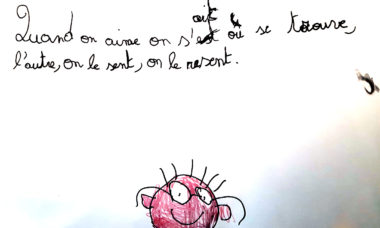 Quand on aime on s'est où se trouve,
l'autre, on le sent, on le ressent.